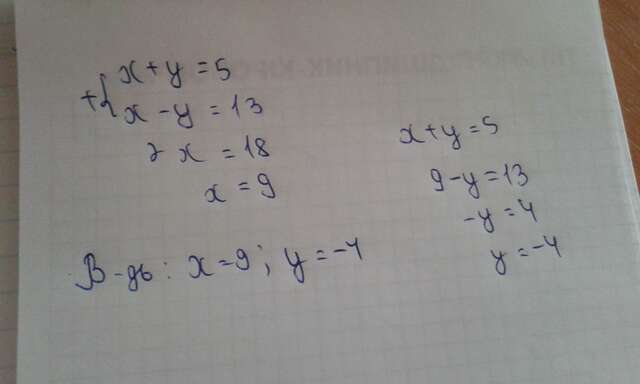 +{x+y=5
x-y=13
2x=18
x=9
x+y=5
9-y=13
-y=4
y=-4
В-дь: x=9; y=-4